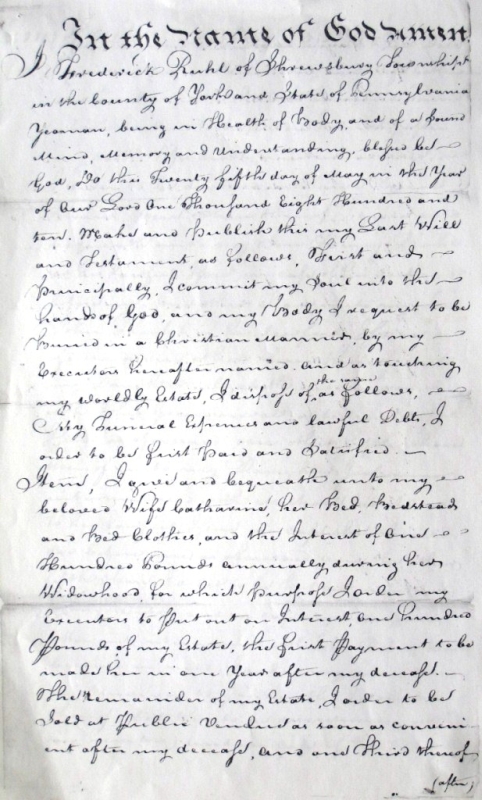 In the Name of God Amen.
I Frederick Ruhl of Shrewsbury Township
in the County of York and State of Pennsylvania
Yeoman, being in Health of Body, and of a sound
Mind, Memory and Understanding, blessed be
God, Do this Twenty fifth day of May in the Year
of Our Lord One Thousand Eight Hundred and
ten. Make and Publish this my Last Will
and Testament, as Follows, First and
Principally, I commit my Soul into the
hands of God, and my Body I request to be
Buried in a Christian Manner, by my
Executors hereafter named. and as touching
my worldly Estate, I dispose of the same as Follows,
My Funeral Expences and lawful Debts, I
order to be First Paid and Satisfied.
Item, I give and bequeath unto my
beloved Wife Catharina, her Bed, Bedstead
and Bed Clothes, and the Interest of One
Hundred Pounds annually during her
Widowhood for which Purpose I order my
Executors to Put out on Interest one hundred
Pounds of my Estate, the First Payment to be
made her in one Year after my decease.
The remainder of my Estate, I order to be
Sold at Public Vendue as soon as conveni
ent after my decease, and one third thereof
(after)